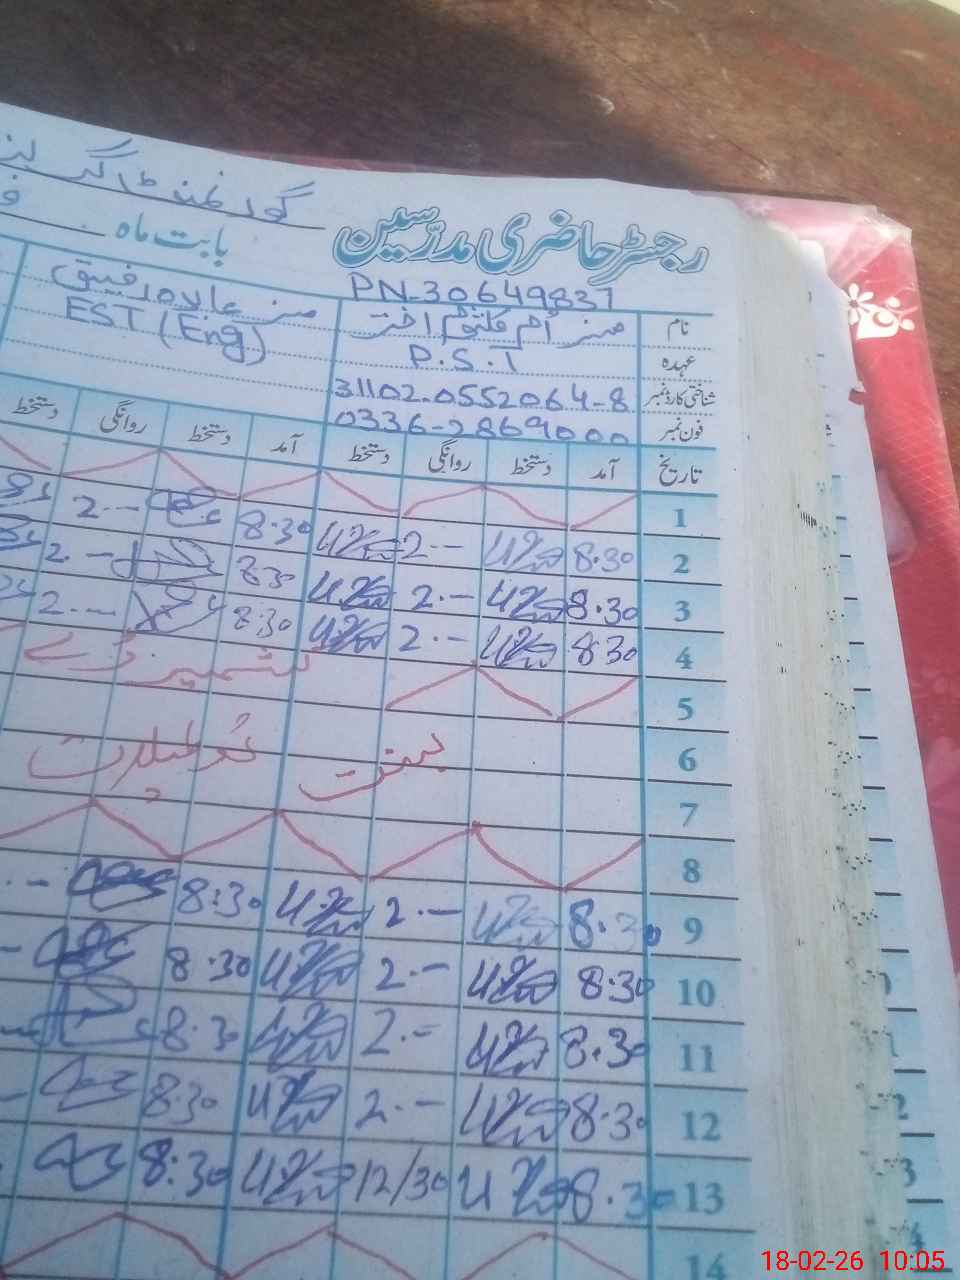 گورنمنٹ گرلز
رجسٹر حاضری مدرسین
بابت ماہ
PN-30649831
نام مسز اُم کلثوم اختر مسز عابدہ رفیق
عہدہ P.S.T EST (Eng)
شناختی کارڈ نمبر 31102-0552064-8
فون نمبر 0336-2869000
تاریخ آمد دستخط روانگی دستخط آمد دستخط روانگی دستخط
1
2 8.30 2.-- 8.30 2.--
3 8.30 2.-- 8.30 2--
4 8.30 2.-- 8.30 2.--
کشمیر ڈے
5
6
ہفتہ
7
8
9 8.30 2.-- 8:30
10 8.30 2.-- 8.30
11 8.30 2.-- 8.30
12 8.30 2.-- 8.30
13 8.30 12/30 8:30
14
18-02-26 10:05